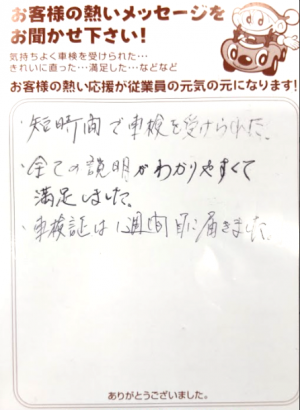 お客様の熱いメッセージを
お聞かせ下さい!
気持ちよく車検を受けられた…
きれいに直った…満足した…などなど
お客様の熱い応援が従業員の元気の元になります!
・短時間で車検を受けられた。
・全ての説明がわかりやすくて
満足しました。
・車検証は1週間目に届きました。
ありがとうございました。